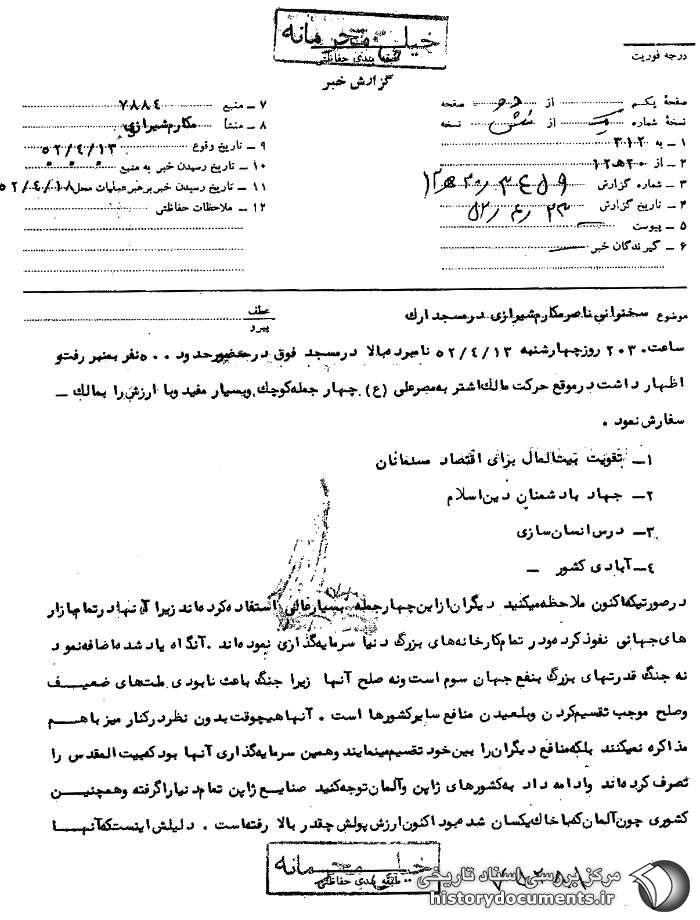 خیلی محرمانه
طبقه بندی حفاظتی
گزارش خبر
درجه فوریت
صفحهٔ یکم از دو صفحه
نسخهٔ شماره یک از شش نسخه
۱ ــ به ۳۱۲
۲ ــ از ۲۰هـ۱۲
۳ ــ شماره گزارش
۴ ــ تاریخ گزارش ۵۲/۴/۲۳
۵ ــ پیوست
۶ ــ گیرندگان خبر
۷ ــ منبع ۷۸۸۴
۸ ــ منشأ مکارم شیرازی
۹ ــ تاریخ وقوع ۵۲/۴/۱۳
۱۰ ــ تاریخ رسیدن خبر به منبع
۱۱ ــ تاریخ رسیدن خبر برهبر عملیات محل ۵۲/۴/۱۸
۱۲ ــ ملاحظات حفاظتی
موضوع سخنرانی ناصر مکارم شیرازی در مسجد ارک
عطف
پیرو
ساعت ۲۰۳۰ روز چهارشنبه ۵۲/۴/۱۳ نامبرده بالا در مسجد فوق در حضور حدود ۵۰۰ نفر بمنبر رفت و
اظهار داشت در موقع حرکت مالک اشتر به مصر علی (ع) چهار جمله کوچک و بسیار مفید و با ارزش را بمالک ــ
سفارش نمود .
۱ــ تقویت بیت المال برای اقتصاد مسلمانان
۲ــ جهاد با دشمنان دین اسلام
۳ــ درس انسان سازی
۴ــ آبادی کشور ــ
در صورتیکه اکنون ملاحظه میکنید دیگران از این چهار جمله بسیار عالی استفاده کرده اند زیرا آنها در تمام بازار
های جهانی نفوذ کرده و در تمام کارخانه های بزرگ دنیا سرمایه گذاری نموده اند . آنگاه یاد شده اضافه نمود
نه جنگ قدرتهای بزرگ بنفع جهان سوم است و نه صلح آنها زیرا جنگ باعث نابودی ملت های ضعیف
و صلح موجب تقسیم کردن و بلعیدن منافع سایر کشورها است . آنها هیچوقت بدون نظر در کنار میز با هم
مذاکره نمیکنند بلکه منافع دیگران را بین خود تقسیم مینمایند و همین سرمایه گذاری آنها بود که بیت المقدس را
تصرف کرده اند و ادامه داد به کشورهای ژاپن و آلمان توجه کنید صنایع ژاپن تمام دنیا را گرفته و همچنین
کشوری چون آلمان که با خاک یکسان شده بود اکنون ارزش پولش چقدر بالا رفته است . دلیلش اینست که آنها
خیلی محرمانه
طبقه بندی حفاظتی
مرکز بررسی اسناد تاریخی
historydocuments.ir